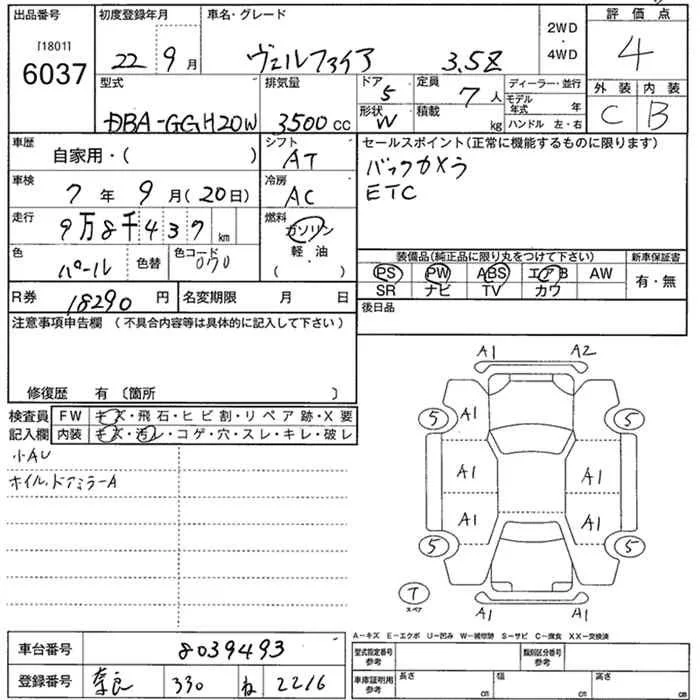 出品番号 初度登録年月 車名・グレード 評価点
[1801] 2WD
6037 22 9月 ヴェルファイア 3.5Z ・4WD 4
型式 排気量 ドア 5 定員 7人 ディーラー・並行 外装 内装
DBA-GGH20W 3500cc 形状 W 積載 kg モデル年式 年 C B
ハンドル 左・右
車歴 自家用・( ) シフト AT セールスポイント(正常に機能するものに限ります)
バックカメラ
車検 7年 9月(20日) 冷房 AC ETC
走行 9万8千437km 燃料 ガソリン
軽・油
・( )
色 パール 色替 色コード 070 装備品(純正品に限り丸をつけて下さい) 新車保証書
PS PW ABS エアB AW 有・無
SR ナビ TV カワ
R券 18290円 名変期限 月 日 後日品
注意事項申告欄 (不具合内容等は具体的に記入して下さい)
修復歴 有 〔箇所 〕
検査員 FW キズ・飛石・ヒビ割・リペア跡・X要
記入欄 内装 キズ・汚レ・コゲ・穴・スレ・キレ・破レ
小AU
ホイル、ドアミラーA
A1 A2
5 A1 5
A1 A1
A1 A1
5 5
T
スペア
A1 A1
A-キズ E-エクボ U-凹み W-補修跡 S-サビ C-腐食 XX-交換済
車台番号 8039493 型式指定番号 参考 類別区分番号 参考
登録番号 奈良 330 ね 2216 車庫証明用 参考 長さ cm 幅 cm 高さ cm